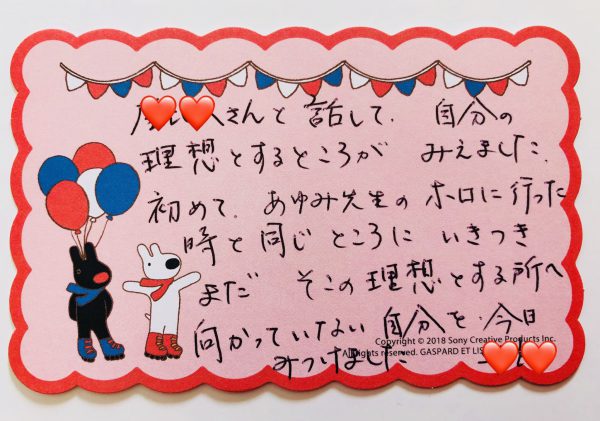 さんと話して、自分の
理想とするところが みえました。
初めて、あゆみ先生のホロに行った
時と同じところに いきつき
まだ そこの理想とする所へ
向かっていない自分を 今日
みつけました
Copyright © 2018 Sony Creative Products Inc.
All rights reserved. GASPARD ET LIS